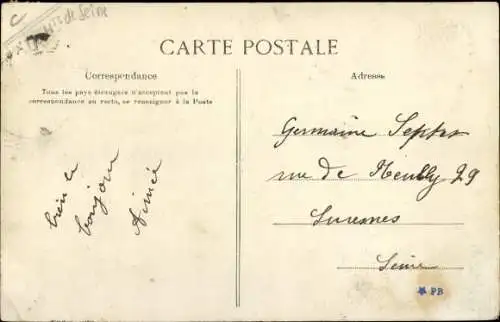 C
Hts de Seine
CARTE POSTALE
Correspondance
Tous les pays étrangers n'acceptent pas la
correspondance au recto, se renseigner à la Poste
Adresse
bien le
bonjour
Aimée
Germaine
rue de Neuilly 29
Suresnes
Seine
PB